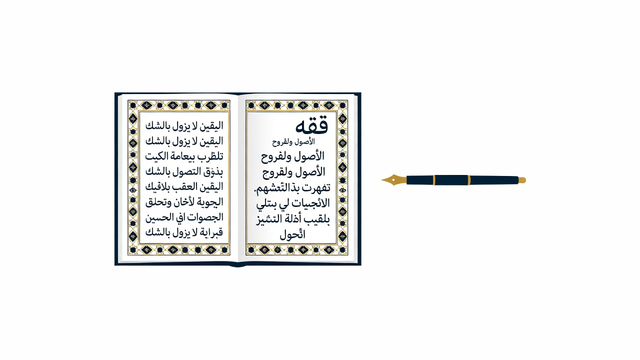 فقه
الأصول ولفروح
الأصول ولفروح
الأصول ولفروح
تفهرت بذالتّعشهم.
الائجبيات لي بىتلي
بلقيب أذلة النشيز
اتّحول
اليقين لا يزول بالشك
اليقين لا يزول بالشك
تلظرب بيعامة الكيت
بذوق التصول بالشك
اليقين العقب بلاقيك
اليحوبة لأخان وتحلق
الجصوات افي الحسين
قبراية لا يزول بالشك